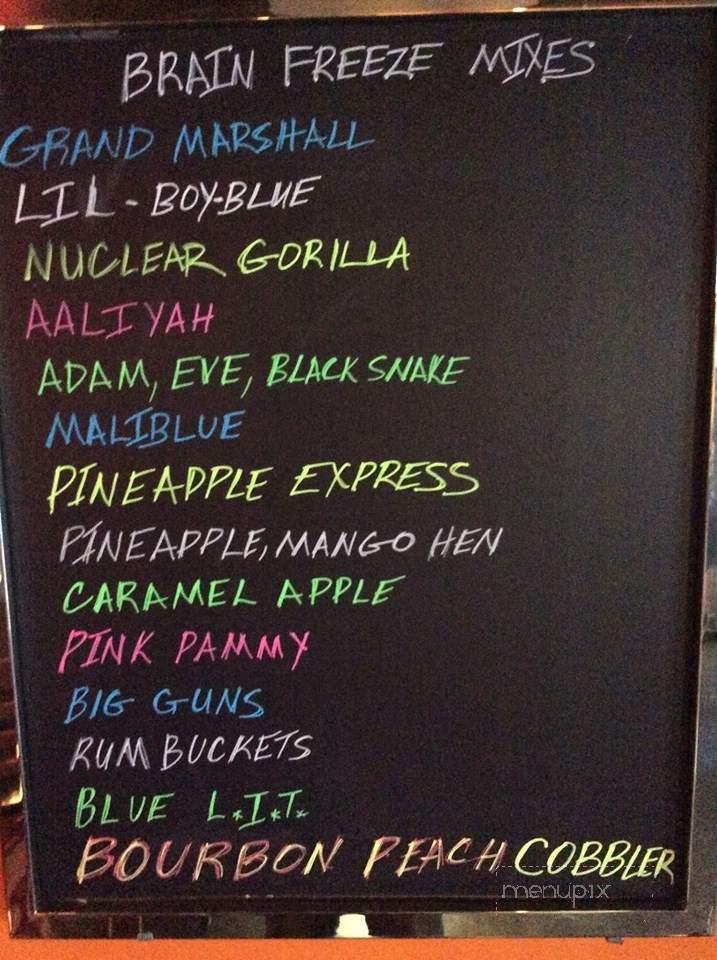 BRAIN FREEZE MIXES
GRAND MARSHALL
LIL-BOY-BLUE
NUCLEAR GORILLA
AALIYAH
ADAM, EVE, BLACK SNAKE
MALIBLUE
PINEAPPLE EXPRESS
PINEAPPLE, MANGO HEN
CARAMEL APPLE
PINK PAMMY
BIG GUNS
RUM BUCKETS
BLUE L*I*T*
BOURBON PEACH COBBLER
menupix